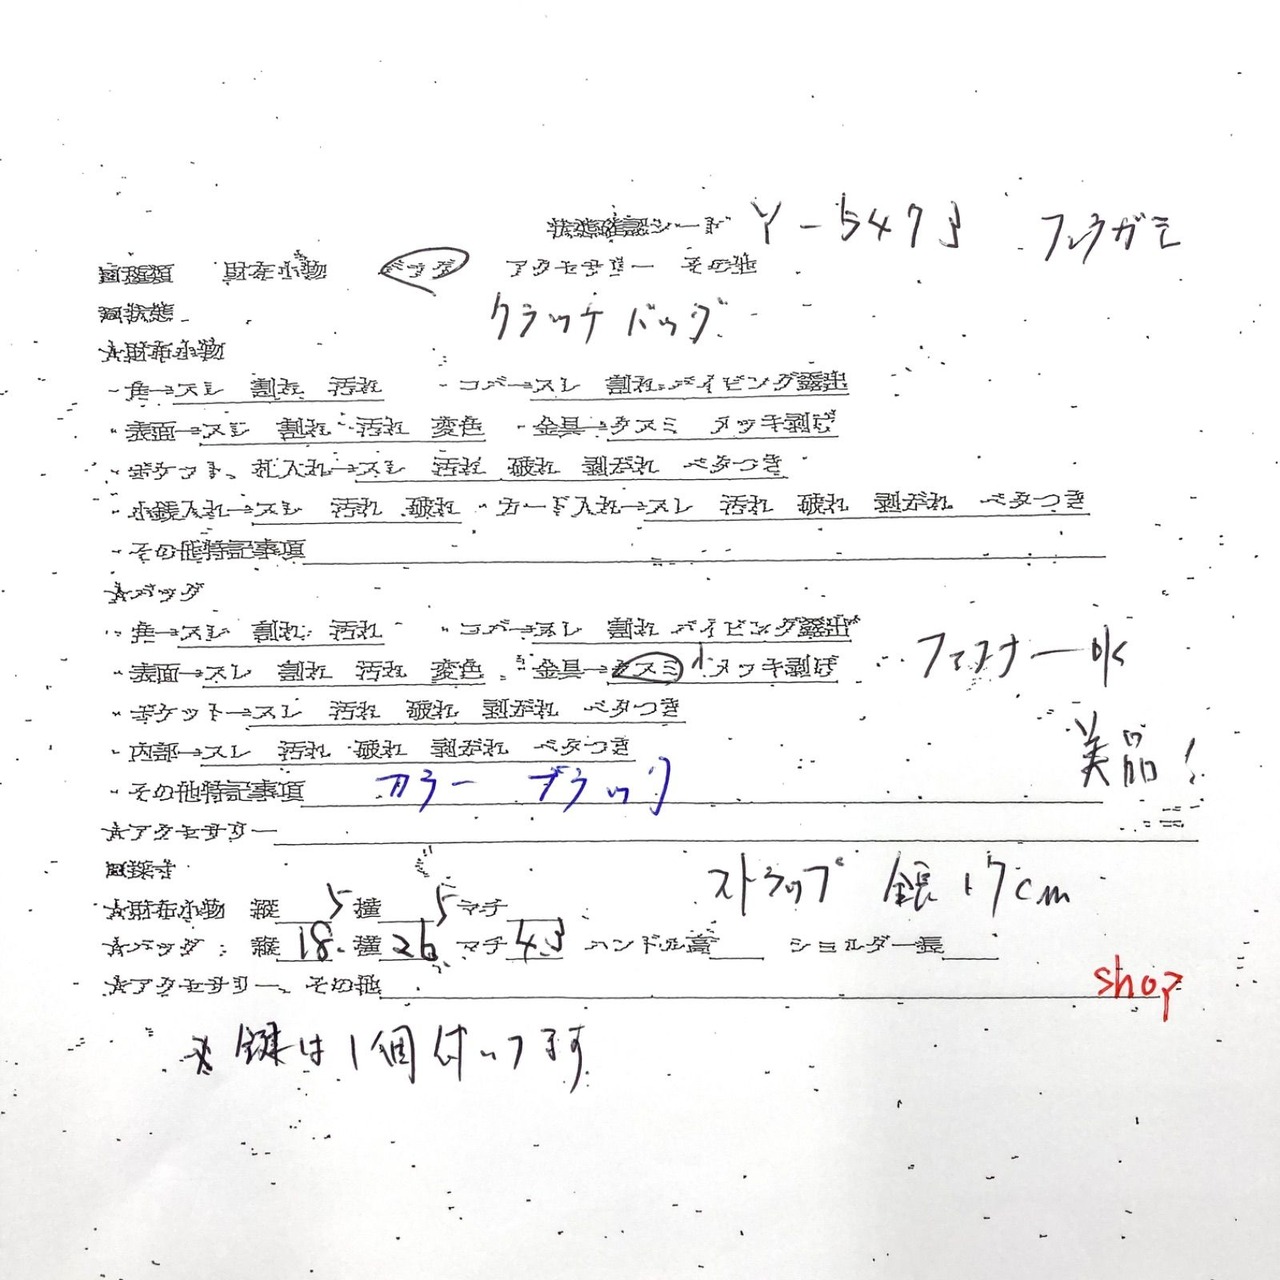 状態確認シート Y-5473 フェラガモ
□種類 財布小物 バッグ アクセサリー その他
□状態 クラッチバッグ
☆財布小物
・角→スレ 割れ 汚れ ・コバ→スレ 割れ パイピング露出
・表面→スレ 割れ 汚れ 変色 ・金具→クスミ メッキ剥げ
・ポケット、札入れ→スレ 汚れ 破れ 剥がれ ベタつき
・小銭入れ→スレ 汚れ 破れ ・カード入れ→スレ 汚れ 破れ 剥がれ ベタつき
・その他特記事項
☆バッグ
・角→スレ 割れ 汚れ ・コバ→スレ 割れ パイピング露出
・表面→スレ 割れ 汚れ 変色 ・金具→クスミ 小 メッキ剥げ ファスナーok
・ポケット→スレ 汚れ 破れ 剥がれ ベタつき
・内部→スレ 汚れ 破れ 剥がれ ベタつき 美品!
・その他特記事項 カラー ブラック
☆アクセサリー
□採寸 ストラップ 全長17cm
☆財布小物 縦 5 横 5 マチ
☆バッグ : 縦 18. 横 26 マチ 4.5 ハンドル高 ショルダー長
☆アクセサリー、その他 shop
※鍵は1個付いてます